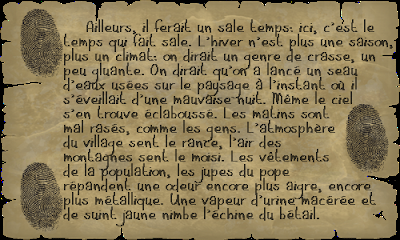 Ailleurs, il ferait un sale temps: ici, c'est le
temps qui fait sale. L'hiver n'est plus une saison,
plus un climat: on dirait un genre de crasse, un
peu gluante. On dirait qu'on a lancé un seau
d'eaux usées sur le paysage à l'instant où il
s'éveillait d'une mauvaise nuit. Même le ciel
s'en trouve éclaboussé. Les matins sont
mal rasés, comme les gens. L'atmosphère
du village sent le rance, l'air des
montagnes sent le moisi. Les vêtements
de la population, les jupes du pope
répandent une odeur encore plus aigre, encore
plus métallique. Une vapeur d'urine macérée et
de suint jaune nimbe l'échine du bétail.